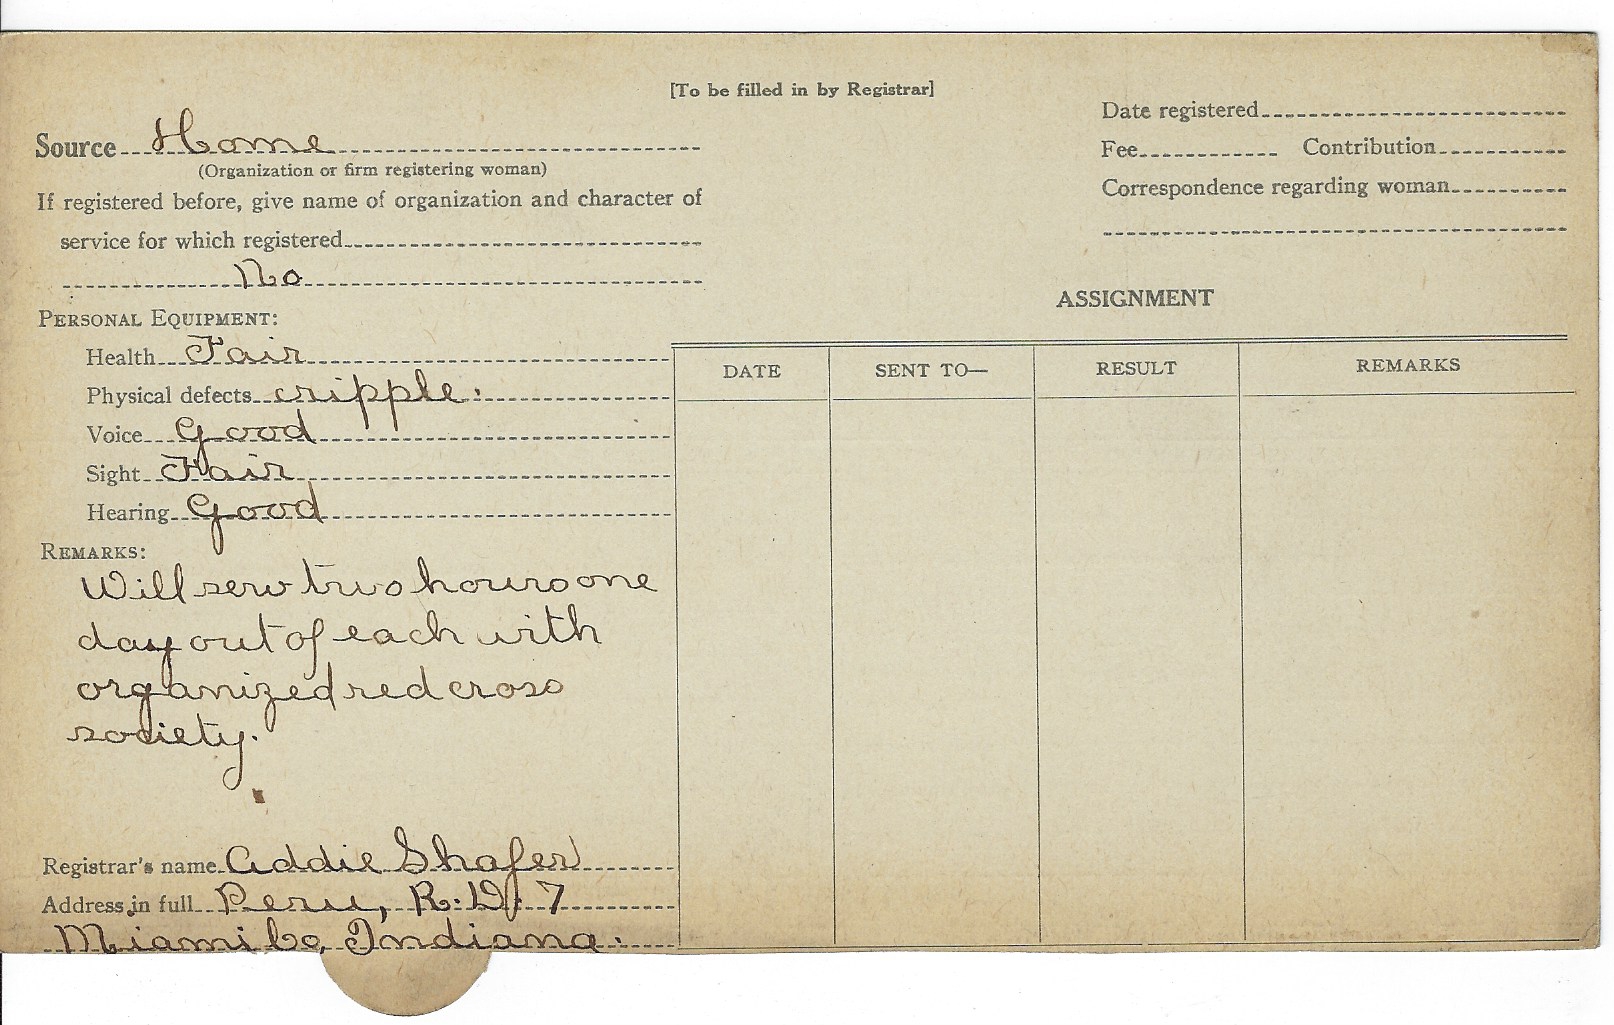 [To be filled in by Registrar]
Source Home
(Organization or firm registering woman)
If registered before, give name of organization and character of
service for which registered
No
PERSONAL EQUIPMENT:
Health Fair
Physical defects cripple.
Voice Good
Sight Fair
Hearing Good
REMARKS:
Will sew two hours one
day out of each with
organized red cross
society.
Registrar's name Addie Shafer
Address in full Peru, R.D. 7
Miami Co, Indiana.
Date registered
Fee Contribution
Correspondence regarding woman
ASSIGNMENT
DATE SENT TO— RESULT REMARKS